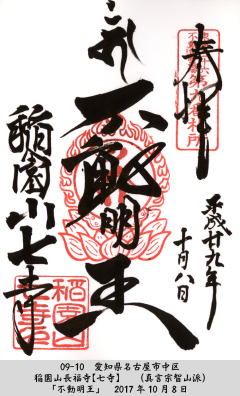 奉拝
平成廿九年
十月八日
不動明王
稲園山七寺
09-10 愛知県名古屋市中区
稲園山長福寺【七寺】 (真言宗智山派)
「不動明王」 2017年10月8日